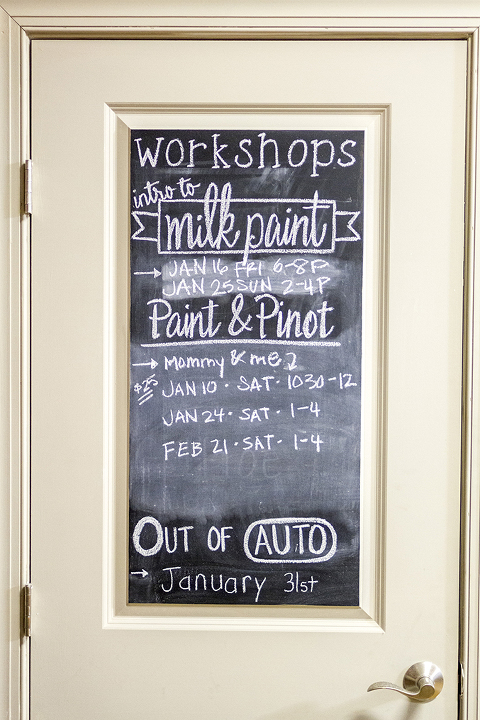 workshops
intro to
milk paint
→ JAN 16 FRI 6-8P
JAN 25 SUN 2-4P
Paint & Pinot
→ Mommy & me
$25 JAN 10 · SAT · 1030-12
JAN 24 · SAT · 1-4
FEB 21 · SAT · 1-4
OUT OF AUTO
→ January 31st